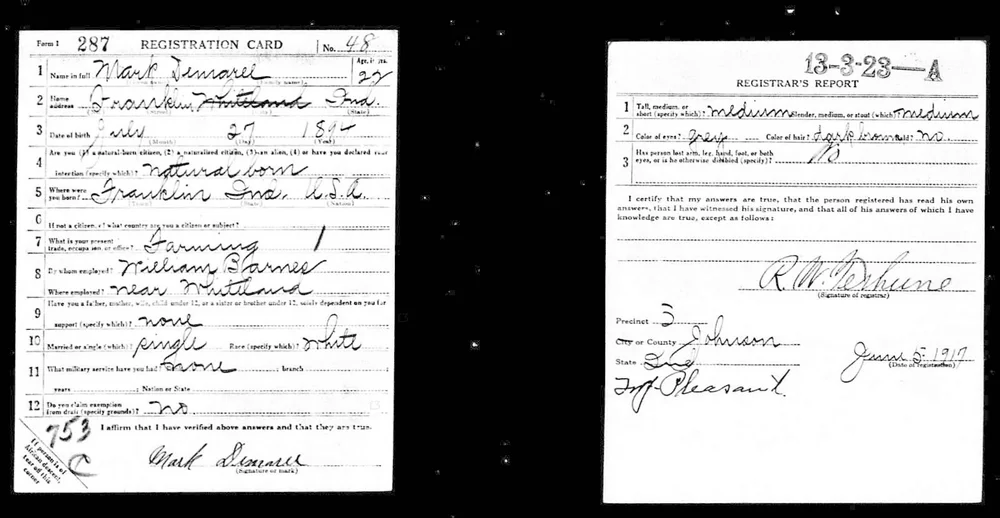 Form 1 287 REGISTRATION CARD No. 48
1 Name in full Mark Demaree Age, in yrs. 22
2 Home address Franklin Whiteland Ind.
3 Date of birth July 27 189
(Month) (Day) (Year)
4 Are you (1) a natural-born citizen, (2) a naturalized citizen, (3) an alien, (4) or have you declared your
intention (specify which)? natural born
5 Where were you born? Franklin Ind. U.S.A.
(Town) (State) (Nation)
6 If not a citizen, of what country are you a citizen or subject?
7 What is your present trade, occupation, or office? Farming 1
8 By whom employed? William Barnes
Where employed? near Whiteland
9 Have you a father, mother, wife, child under 12, or a sister or brother under 12, solely dependent on you for
support (specify which)? none
10 Married or single (which)? single Race (specify which)? White
11 What military service have you had? none ; branch
years ; Nation or State
12 Do you claim exemption from draft (specify grounds)? No
I affirm that I have verified above answers and that they are true.
753
C
If person is of
African descent,
tear off this
corner
Mark Demaree
(Signature or mark)
13-3-23-A
REGISTRAR'S REPORT
1 Tall, medium, or short (specify which)? medium Slender, medium, or stout (which)? medium
2 Color of eyes? grey Color of hair? dark brown Bald? No.
3 Has person lost arm, leg, hand, foot, or both
eyes, or is he otherwise disabled (specify)? No
I certify that my answers are true, that the person registered has read his own
answers, that I have witnessed his signature, and that all of his answers of which I have
knowledge are true, except as follows:
R. W. Terhune
(Signature of registrar)
Precinct 3
City or County Johnson
State Ind
June 5 1917
(Date of registration)
Twp Pleasant